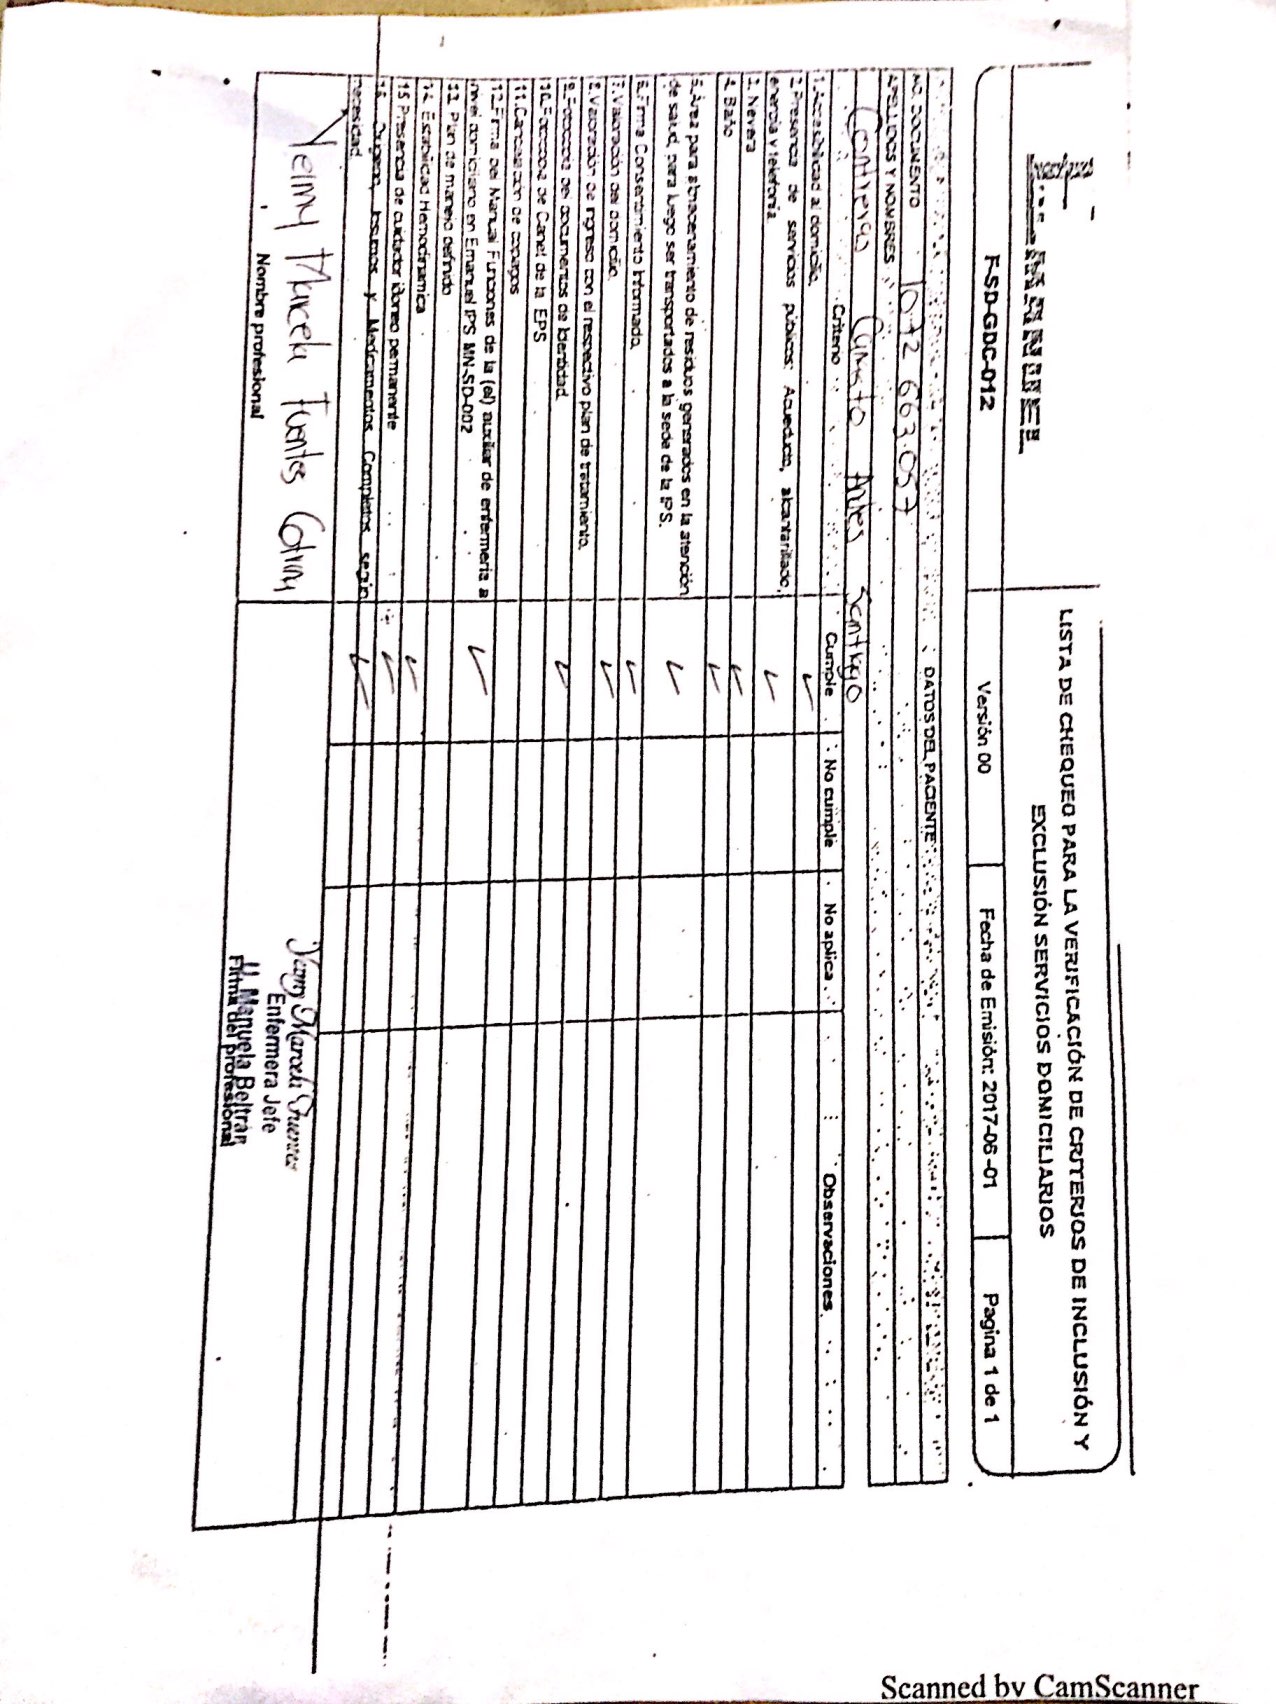 EMANUEL
LISTA DE CHEQUEO PARA LA VERIFICACIÓN DE CRITERIOS DE INCLUSIÓN Y
EXCLUSIÓN SERVICIOS DOMICILIARIOS
F-SD-GDC-012 Versión 00 Fecha de Emisión: 2017-06-01 Pagina 1 de 1
DATOS DEL PACIENTE
NO. DOCUMENTO 1072 663.057
APELLIDOS Y NOMBRES
Contreras Andres Santiago
Criterio Cumple No cumple No aplica Observaciones
1. Accesibilidad al domicilio. ✓
2. Presencia de servicios públicos: Acueducto, alcantarillado, ✓
energía y telefonía
3. Nevera ✓
4. Baño ✓
5. Área para almacenamiento de residuos generados en la atención ✓
de salud, para luego ser transportados a la sede de la IPS.
6. Firma Consentimiento Informado. ✓
7. Valoración del domicilio. ✓
8. Valoración de ingreso con el respectivo plan de tratamiento.
9. Fotocopia del documentos de Identidad. ✓
10. Fotocopia de Carnet de la EPS
11. Cancelación de copagos
12. Firma del Manual Funciones de la (el) auxiliar de enfermería a ✓
nivel domiciliario en Emanuel IPS MN-SD-002
13. Plan de manejo definido
14. Estabilidad Hemodinamica ✓
15 Presencia de cuidador idoneo permanente ✓
16. Oxigeno, Insumos y Medicamentos Completos según ✓
necesidad
Yeimy Marcela Fuentes
Nombre profesional
Yeimy Marcela Fuentes
Enfermera Jefe
U. Manuela Beltrán
Firma del profesional
Scanned by CamScanner